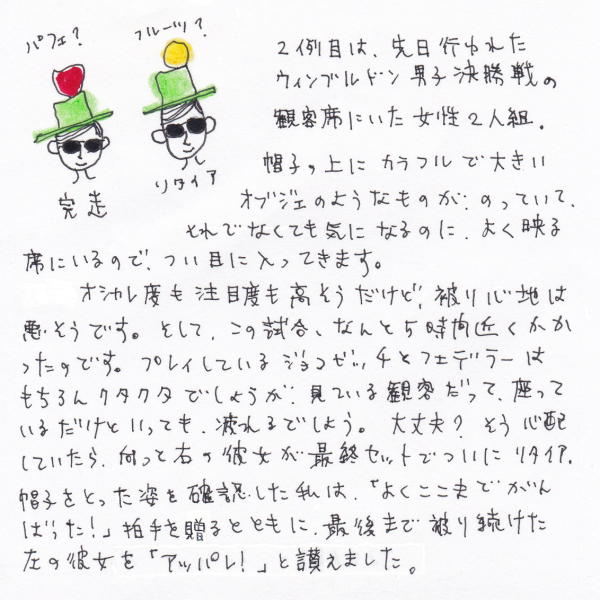 パフェ?
フルーツ?
完走
リタイア
2例目は、先日行われた
ウィンブルドン男子決勝戦の
観客席にいた女性2人組。
帽子の上にカラフルで大きい
オブジェのようなものが、のっていて、
それでなくても気になるのに、よく映る
席にいるので、つい目に入ってきます。
オシャレ度も注目度も高そうだけど、被り心地は
悪そうです。そして、この試合、なんと5時間近くかか
ったのです。プレイしているジョコビッチとフェデラーは
もちろんクタクタでしょうが、見ている観客だって、座って
いるだけといっても、疲れるでしょう。大丈夫?そう心配
していたら、向って右の彼女が最終セットでついにリタイア。
帽子をとった姿を確認した私は、「よくここまでがん
ばった!」拍手を贈るとともに、最後まで被り続けた
左の彼女を「アッパレ!」と讃えました。